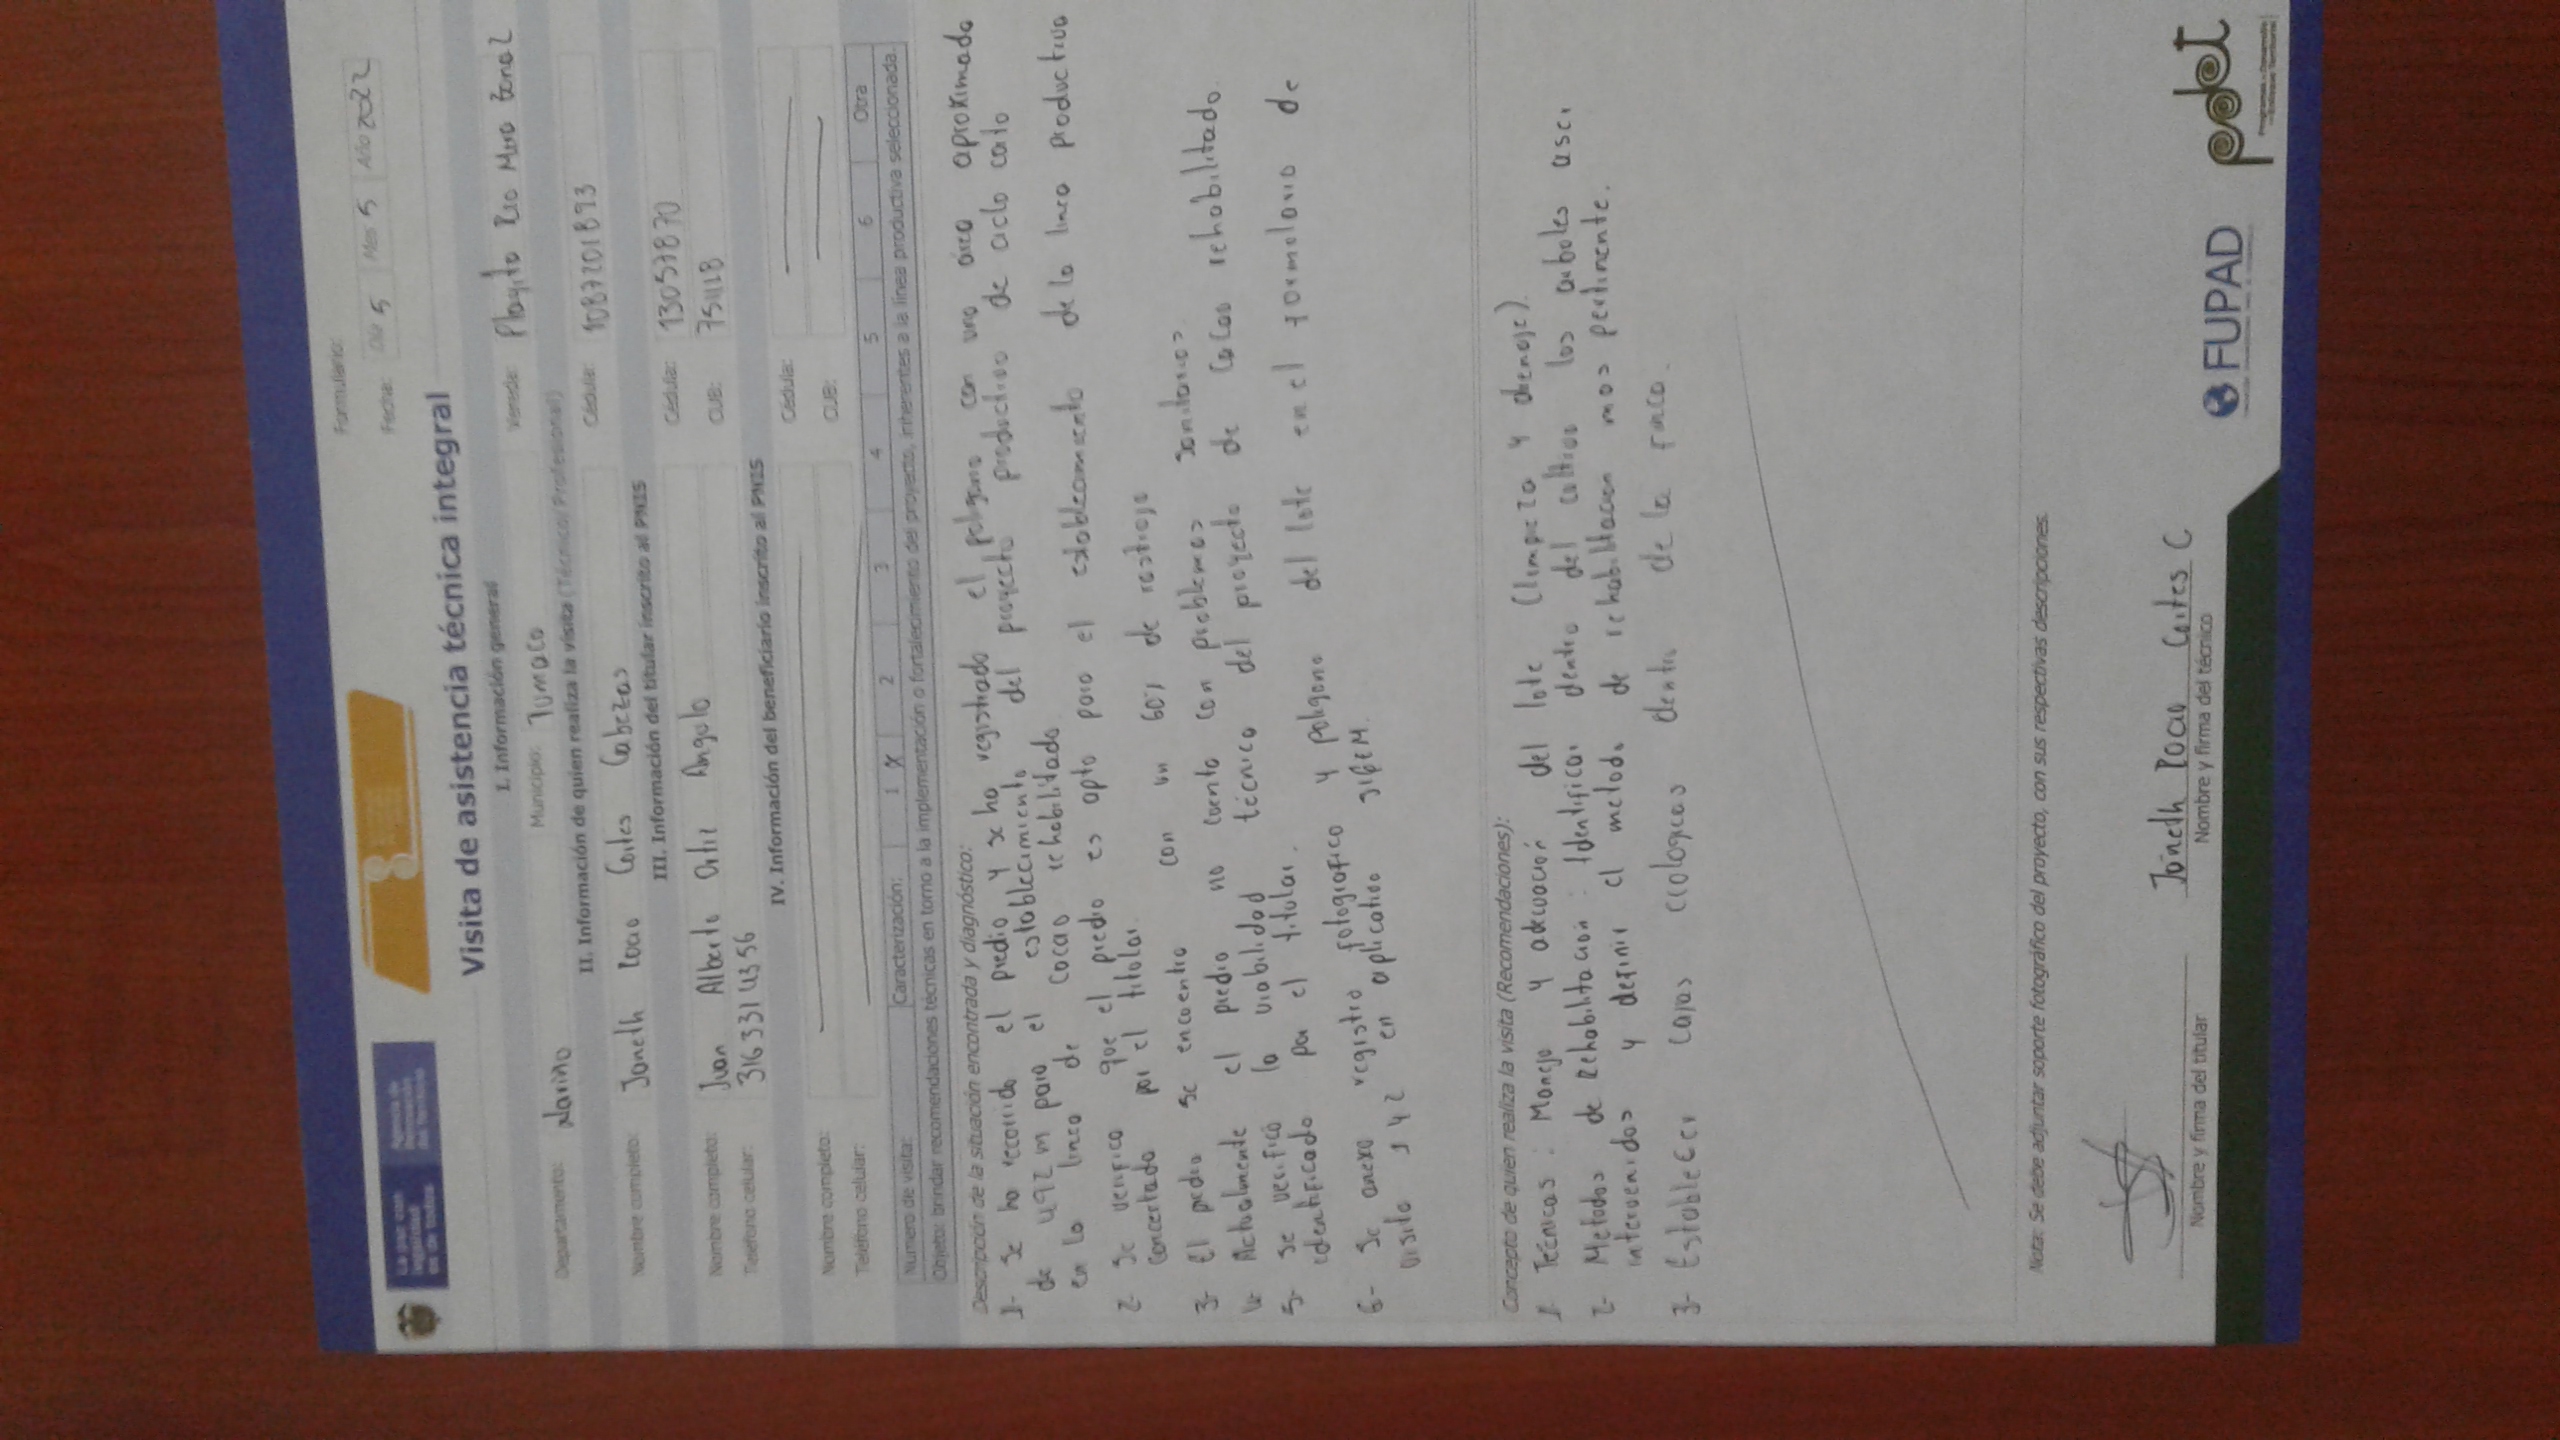 Formulario:
Fecha: Día 5 Mes 5 Año 2022
Visita de asistencia técnica integral
I. Información general
Departamento: Nariño Municipio: Tumaco Vereda: Playita Rio Mira
II. Información de quien realiza la visita (Técnico/Profesional)
Nombre completo: Janeth Cortes Cabezas Cédula: 1087201893
III. Información del titular inscrito al PNIS
Nombre completo: Juan Alberto Ortiz Angulo Cédula: 13057870
Teléfono celular: 3163314356 CUB: 751118
IV. Información del beneficiario inscrito al PNIS
Nombre completo: Cédula:
Teléfono celular: CUB:
Número de visita: Caracterización: 1 X 2 3 4 5 6 Otra
Objeto: brindar recomendaciones técnicas en torno a la implementación o fortalecimiento del proyecto, inherentes a la línea productiva seleccionada.
Descripción de la situación encontrada y diagnóstico:
1- Se ha recorrido el predio y se ha registrado el poligono con una área aproximada
de 492 m para el establecimiento del proyecto productivo de ciclo corto
en la linea de cacao rehabilitado.
2- Se verifico que el predio es apto para el establecimiento de la linea productiva
concertada por el titular.
3- El predio se encuentra con un 60% de rastrojo
4- Actualmente el predio no cuenta con problemas sanitarios
5- Se verificó la viabilidad técnica del proyecto de cacao rehabilitado.
identificado por el titular.
6- Se anexa registro fotografico y poligono del lote en el formulario de
visita 1 y 2 en aplicativo
Concepto de quien realiza la visita (Recomendaciones):
1- Técnicas: Manejo y adecuación del lote (limpieza y drenaje).
2- Metodos de Rehabilitación: Identificar dentro del cultivo los arboles a ser
intervenidos y definir el metodo de rehabilitacion mas pertinente.
3- EstableCer cajas ecologicas dentro de la finca.
Nota: Se debe adjuntar soporte fotográfico del proyecto, con sus respectivas descripciones.
Janeth Cortes C
Nombre y firma del titular Nombre y firma del técnico
FUPAD
pdet